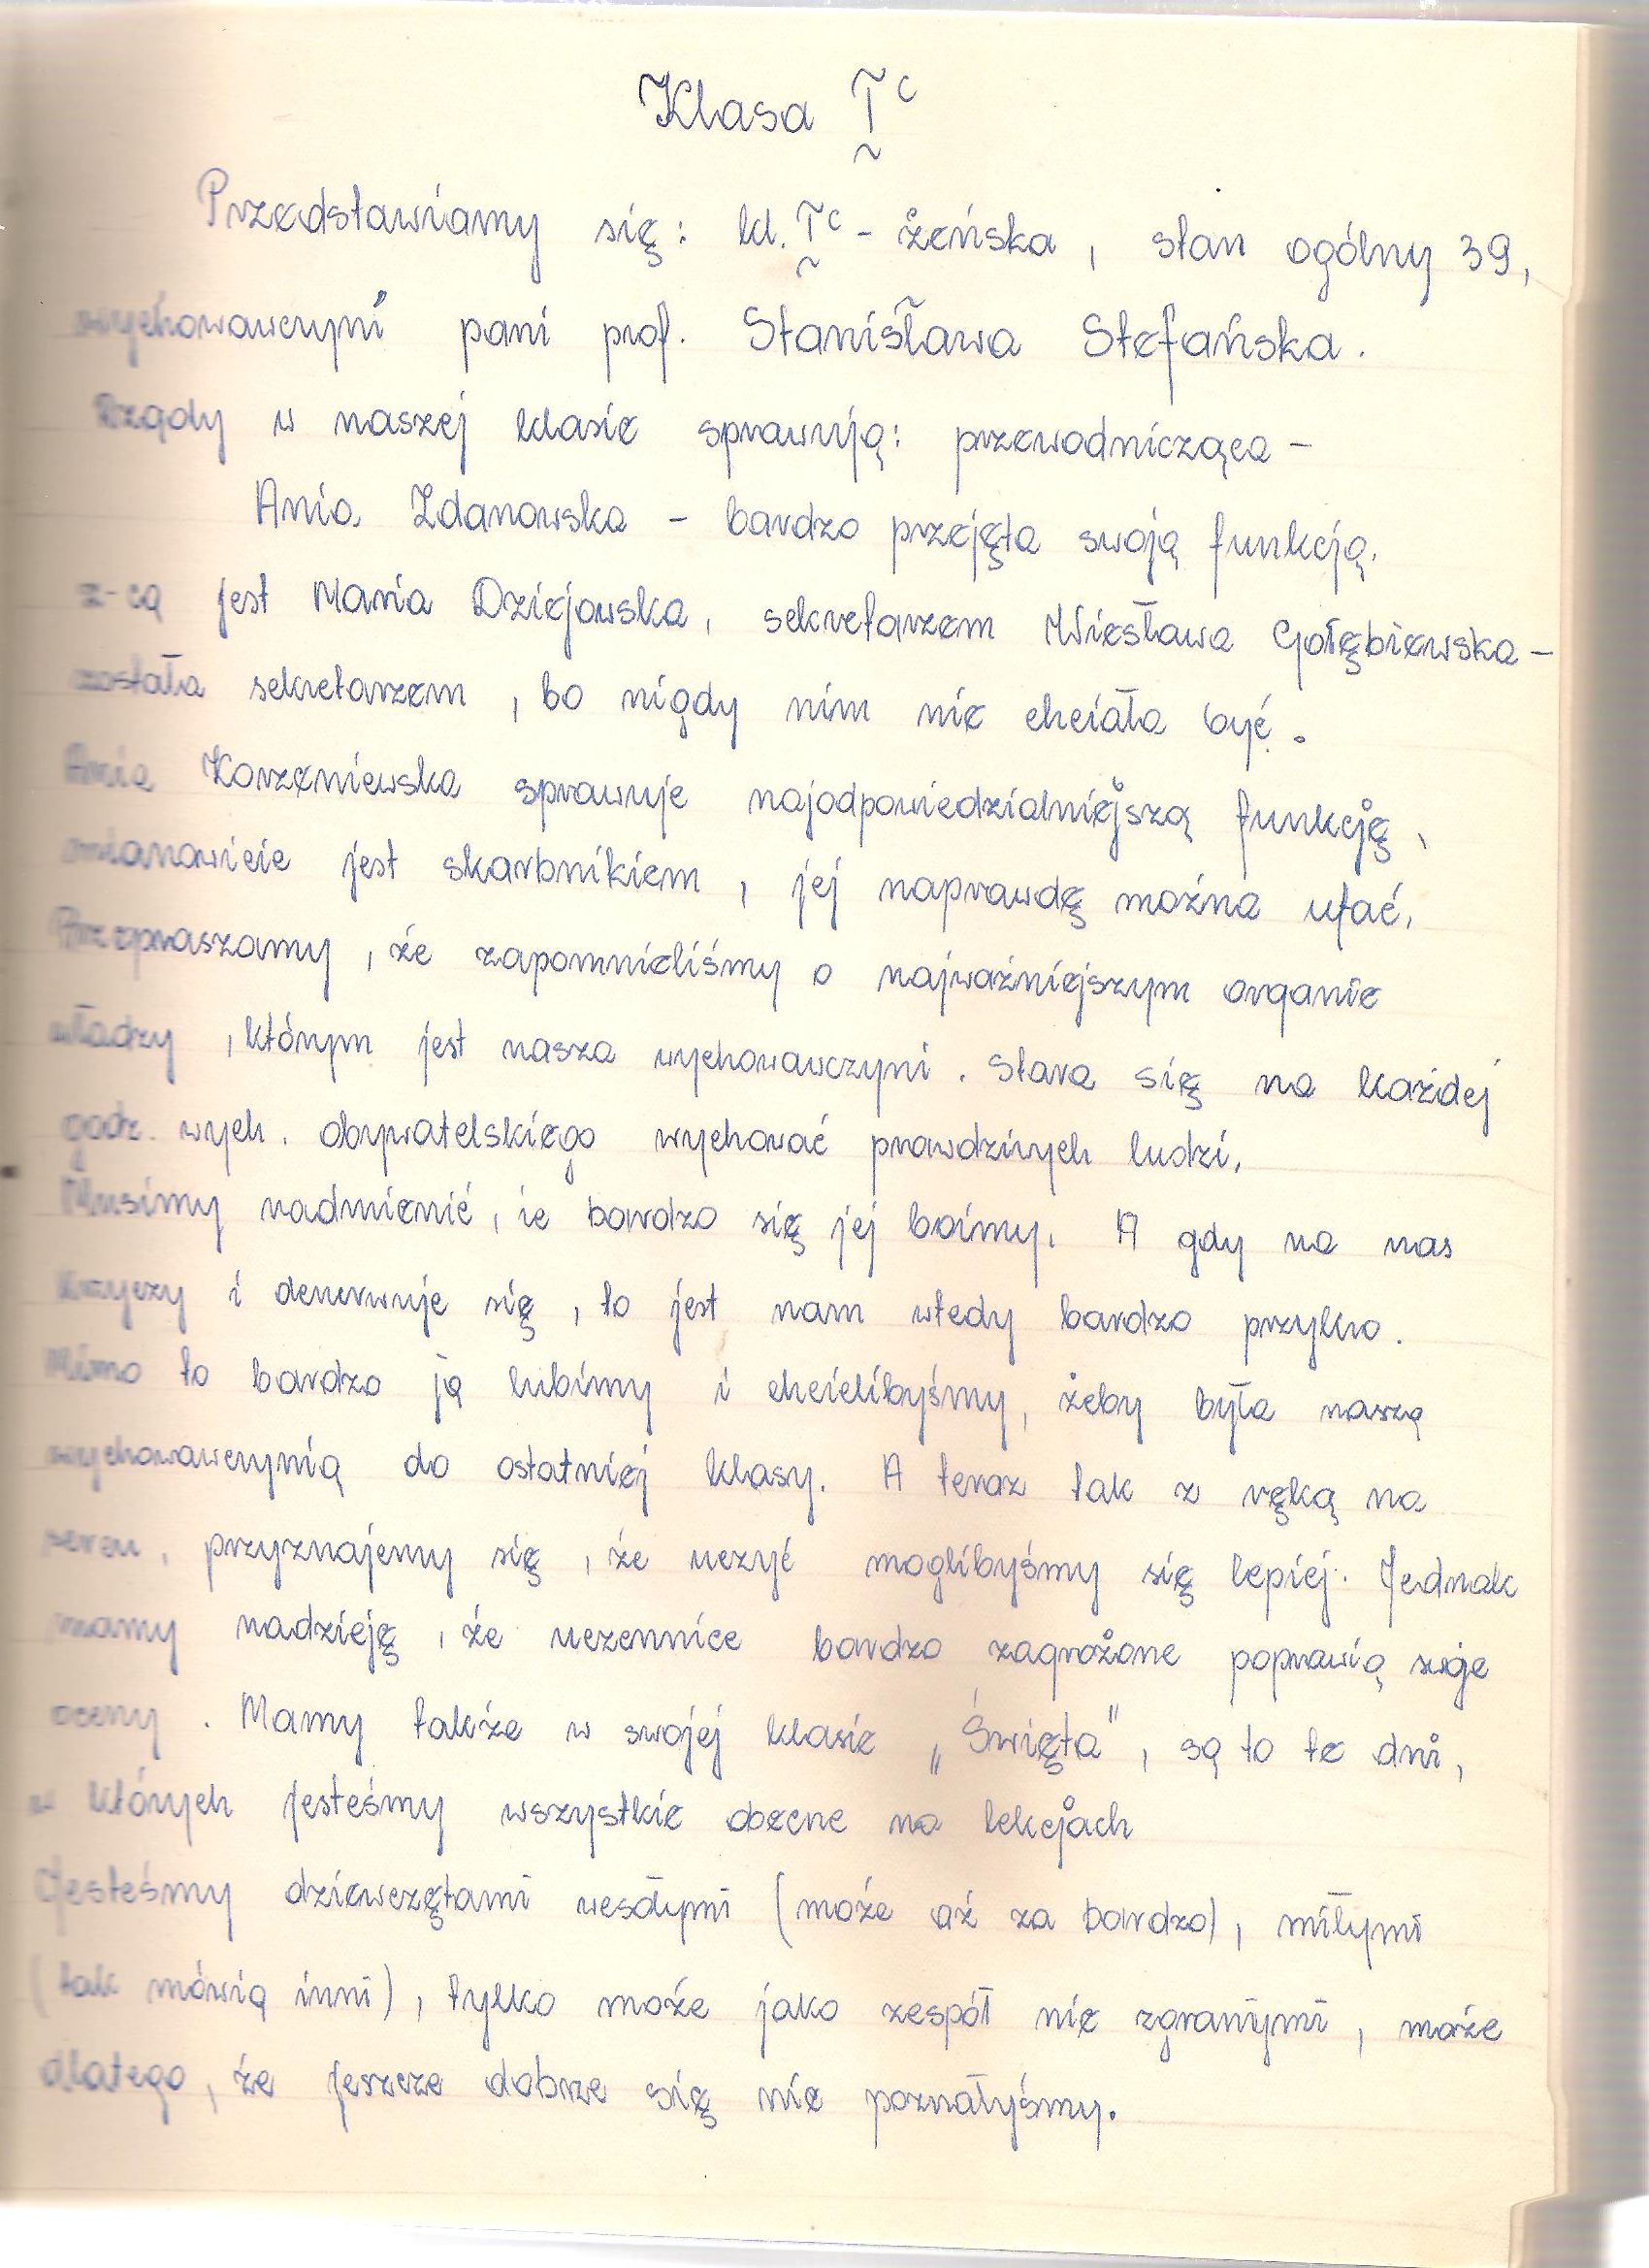 Klasa I c
Przedstawiamy się: kl. I c - żeńska, stan ogólny 39,
wychowawczyni pani prof. Stanisława Stefańska.
Rządy w naszej klasie sprawują: przewodnicząca -
Ania Zdanowska - bardzo przejęta swoją funkcją.
z-cą jest Maria Dziejowska, sekretarzem Wiesława Gołębiewska -
została sekretarzem, bo nigdy nim nie chciała być.
Ania Korzeniewska sprawuje najodpowiedzialniejszą funkcję,
mianowicie jest skarbnikiem, jej naprawdę można ufać.
Przepraszamy, że zapomnieliśmy o najważniejszym organie
władzy, którym jest nasza wychowawczyni. Stara się na każdej
godz. wych. obywatelskiego wychować prawdziwych ludzi.
Musimy nadmienić, że bardzo się jej boimy. A gdy na nas
krzyczy i denerwuje się, to jest nam wtedy bardzo przykro.
Mimo to bardzo ją lubimy i chcielibyśmy, żeby była naszą
wychowawczynią do ostatniej klasy. A teraz tak z ręką na
sercu, przyznajemy się, że uczyć moglibyśmy się lepiej. Jednak
mamy nadzieję, że uczennice bardzo zagrożone poprawią swoje
oceny. Mamy także w swojej klasie „Święta", są to te dni,
w których jesteśmy wszystkie obecne na lekcjach
Jesteśmy dziewczętami wesołymi (może aż za bardzo), miłymi
(tak mówią inni), tylko może jako zespół nie zgranymi, może
dlatego, że jeszcze dobrze się nie poznałyśmy.